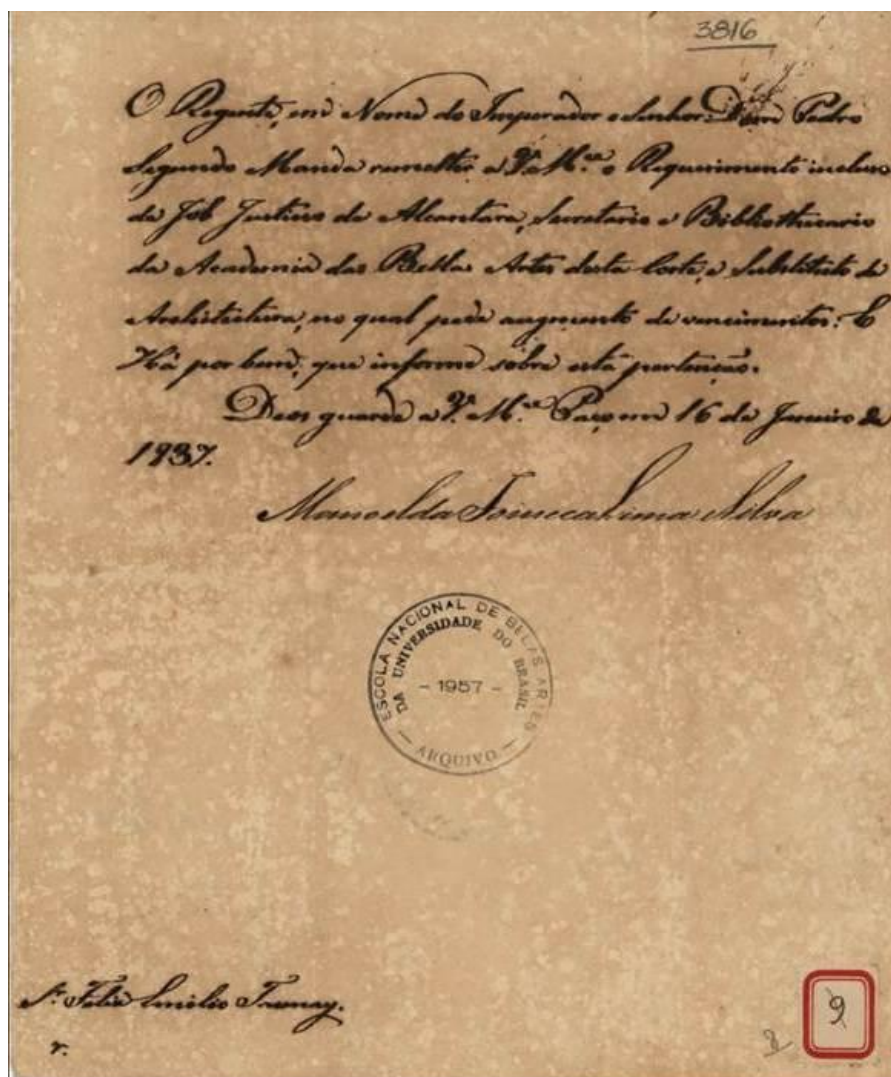 3816
O Regente, em Nome do Imperador o Senhor Dom Pedro
Segundo Manda remetter a V. M.ce o Requerimento incluso
de Job Justino de Alcantara, Secretario e Bibliothecario
da Academia das Bellas Artes desta Corte, e Substituto de
Architectura, no qual pede augmento de vencimentos: E
Há por bem, que informe sobre esta pertenção.
Deos guarde a V. M.ce Paço em 16 de Janeiro de
1837.
Manoel da Fonseca Lima e Silva
ESCOLA NACIONAL DE BELAS ARTES
DA UNIVERSIDADE DO BRASIL
- 1957 -
ARQUIVO
Sr. Felix Emilio Taunay.
9
8